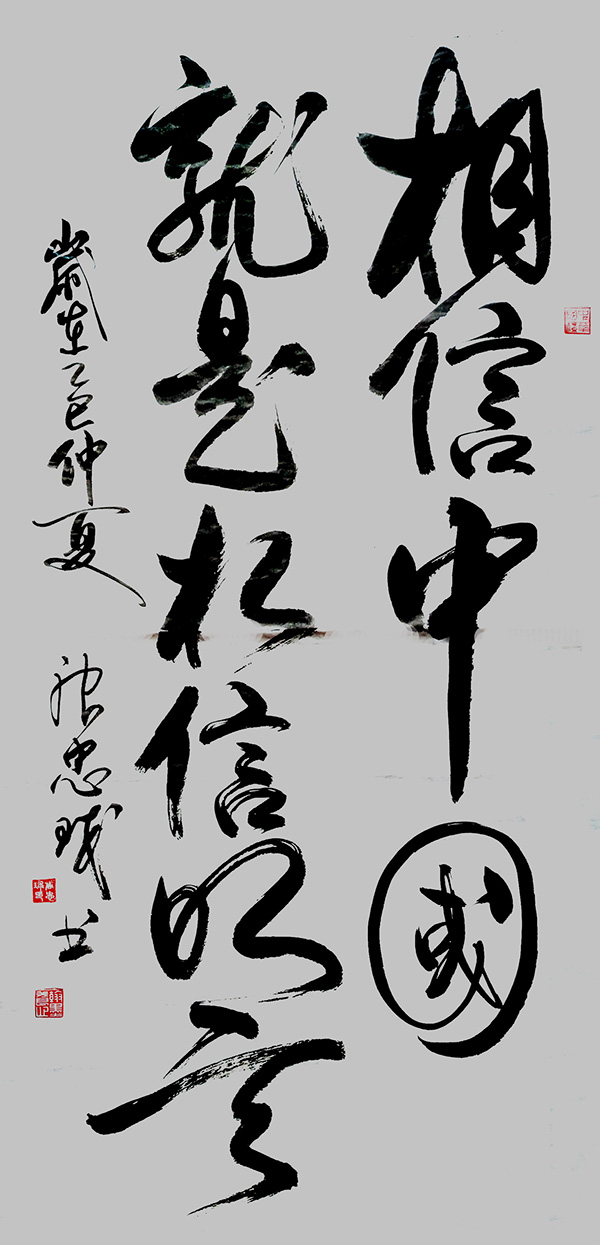 相信中國
就是相信明天
歲在乙巳仲夏
張忠 書